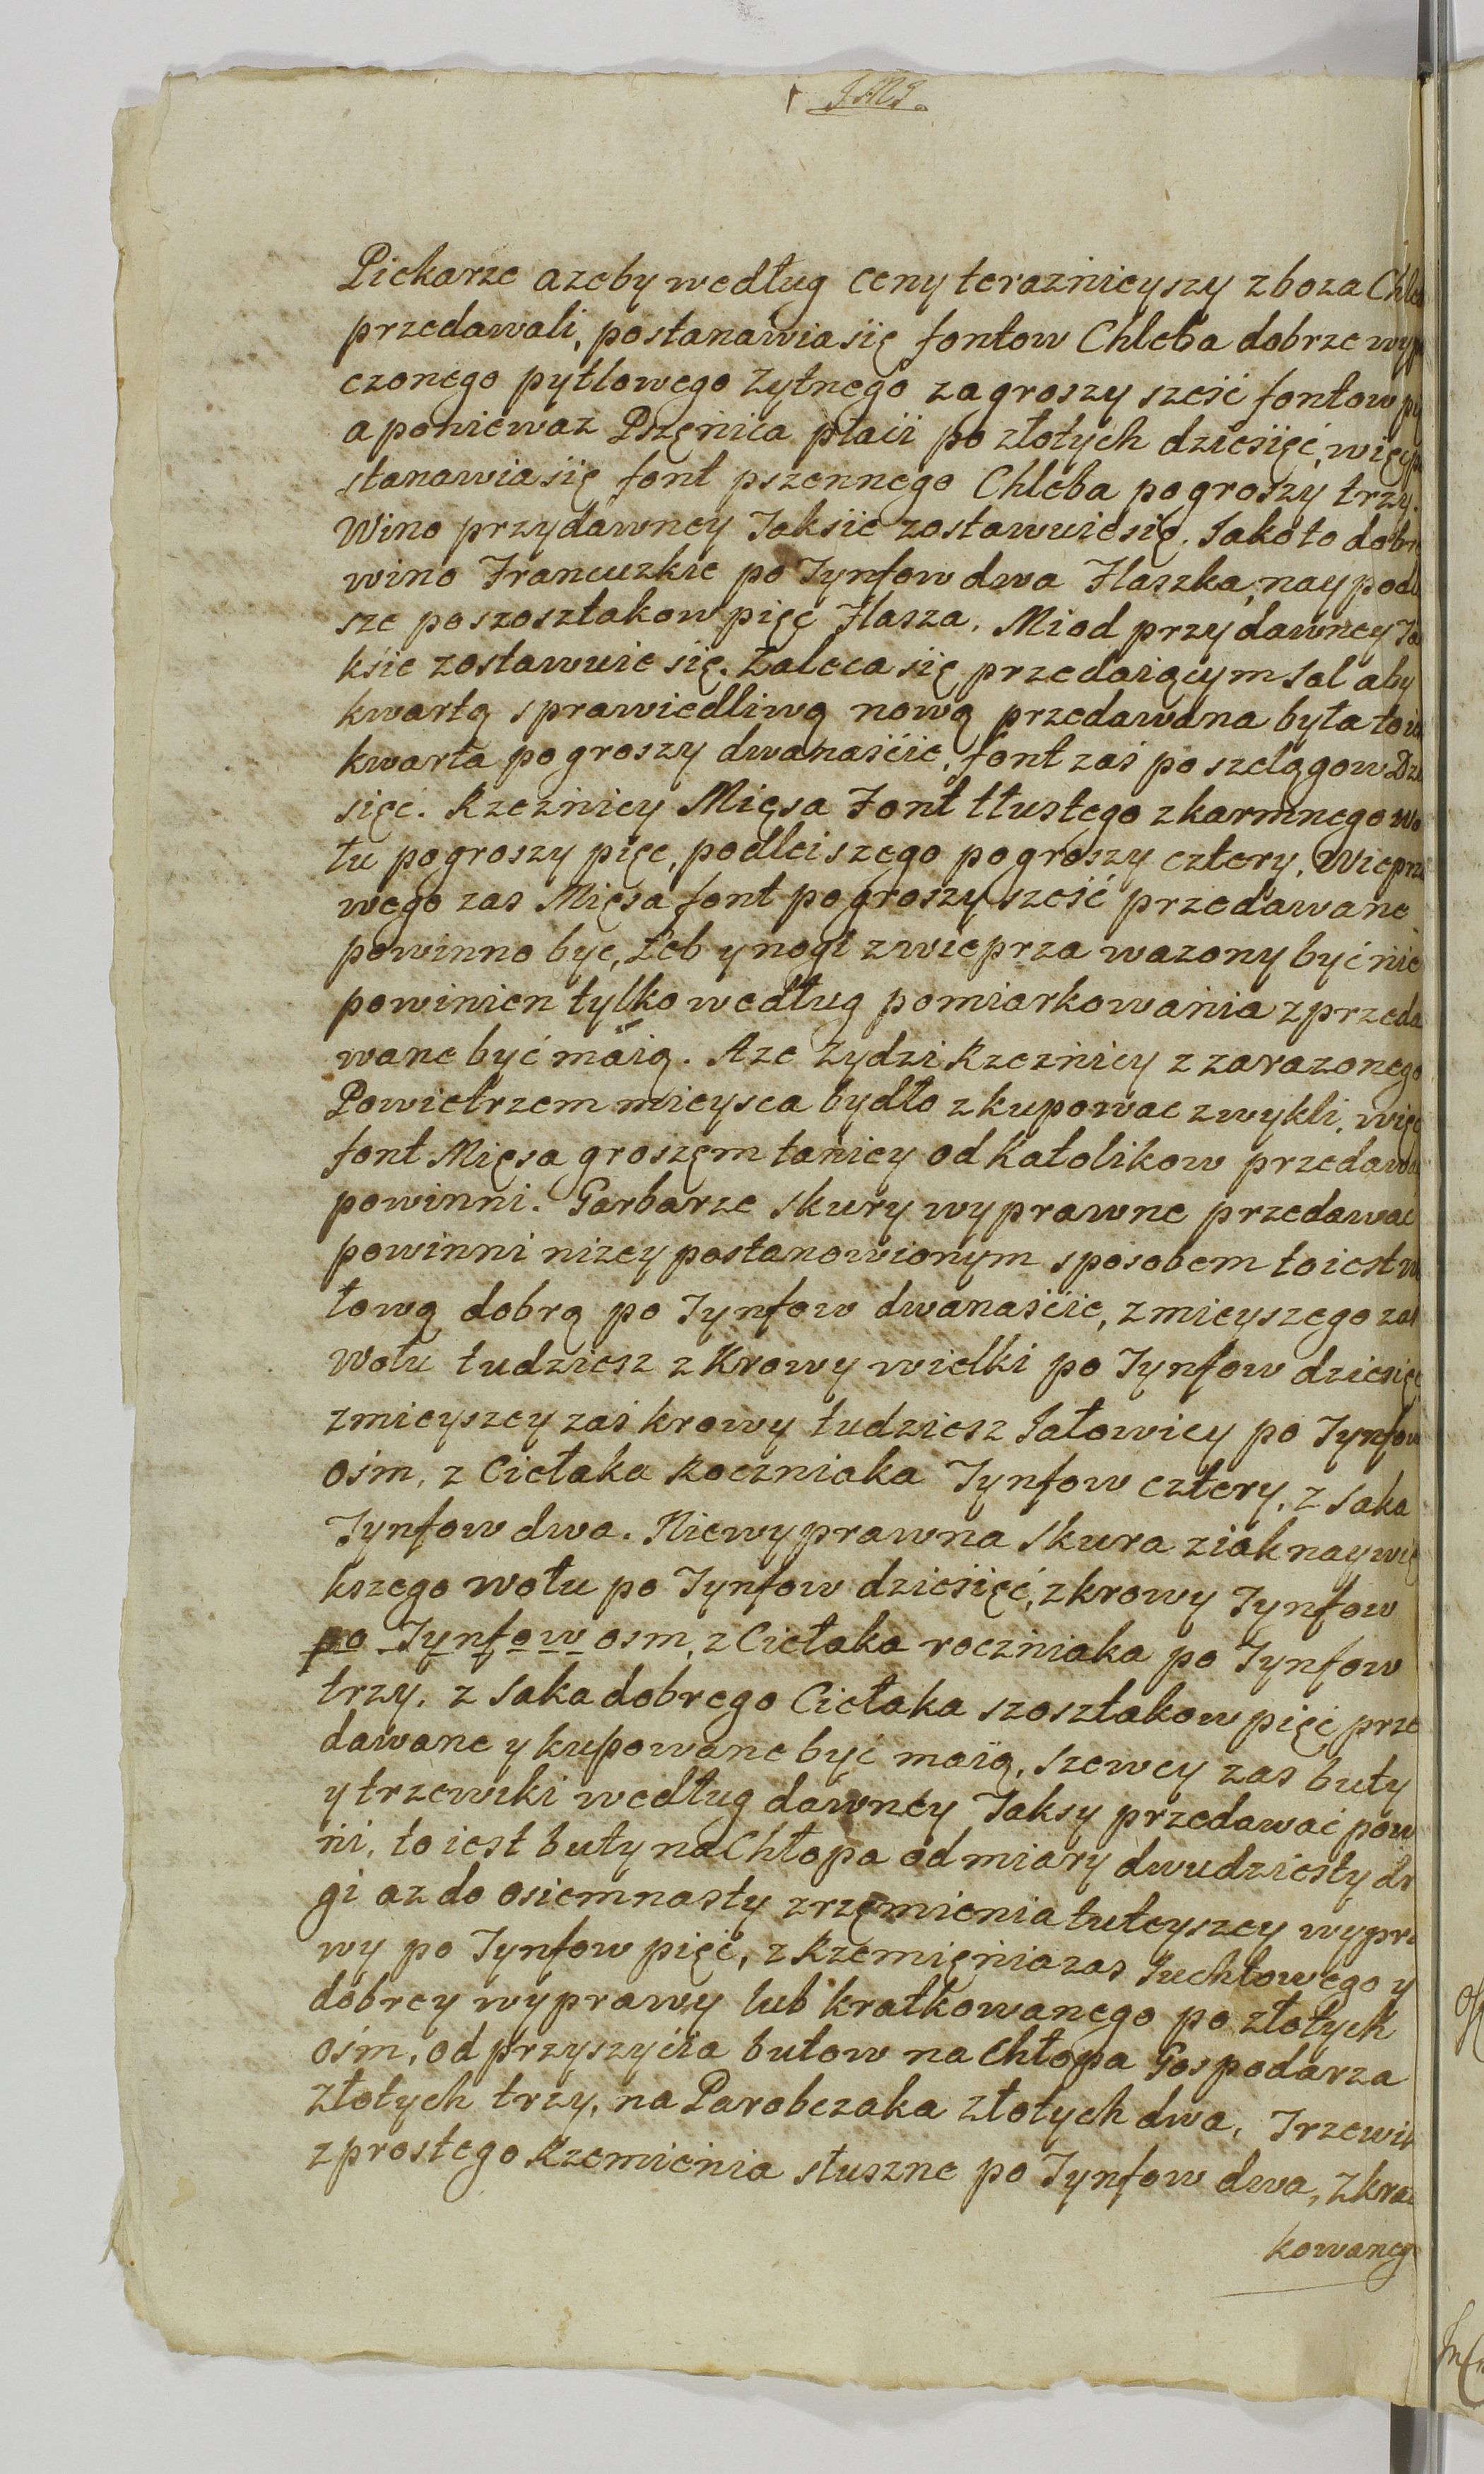 J.M.J.
Piekarze azeby według ceny teraznieyszy zboza Chle
przedawali, postanawia się fontow Chleba dobrze wyp
eczonego pytlowego Zytnego za groszy sześć fontow pi
a poniewaz Pszęnica płaci po złotych dziesięć, więc p
stanawia się font pszennego Chleba po groszy trzy.
Wino przy dawney Taksie zostawuie się. Jako to dobre
wino Francuzkie po Tynfow dwa Flaszka, nay podl
sze po szosztakow pięć Flasza. Miod przy dawney Ta
ksie zostawuie się. Zaleca się przedaiącym sol aby
kwartą sprawiedliwą nową przedawana była to ie
kwarta po groszy dwanaście, font zaś po szelągow Dzie
sięć. Rzeznicy Mięsa Font tłustego z karmnego wo
łu po groszy pięc, podleiszego po groszy cztery, Wieprzo
wego zas Mięsa font po groszy sześć przedawane
powinno byc, Łeb y nogi z wieprza wazony być nie
powinien tylko według pomiarkowania zprzeda
wane być maią. A ze Zydzi Rzeznicy z zarazonego
Powietrzem mieysca bydło zkupowac zwykli, więc
font Mięsa groszęm taniey od Katolikow przedawac
powinni. Garbarze skury wyprawne przedawac
powinni nizey postanowionym sposobem to iest wo
łową dobrą po Tynfow dwanaście, z mieyszego zas
Wołu tudziesz z Krowy wielki po Tynfow dziesięć
z mieyszey zaś krowy tudziesz Jałowicy po Tynfow
ośm, z Cielaka Roczniaka Tynfow cztery, z Saka
Tynfow dwa. Niewyprawna Skura z iak naywię
kszego wołu po Tynfow dziesięć, z krowy Tynfow
po Tynfow osm, z Cielaka roczniaka po Tynfow
trzy, z Saka dobrego Cielaka szosztakow pięć prze
dawane y kupowane być maią, szewcy zas buty
y trzewiki według dawney Taksy przedawać powi
ni, to iest buty na Chłopa od miary dwudziesty dr
gi az do osiemnasty z rzęmienia tuteyszey wypra
wy po Tynfow pięć, z Rzemięnia zas Juchtowego y
dobrey wyprawy lub kratkowanego po złotych
ośm, od przyszycia butow na Chłopa Gospodarza
Złotych trzy, na Parobczaka Złotych dwa, Trzewik
z prostego Rzemienia słuszne po Tynfow dwa, z krat
kowaneg